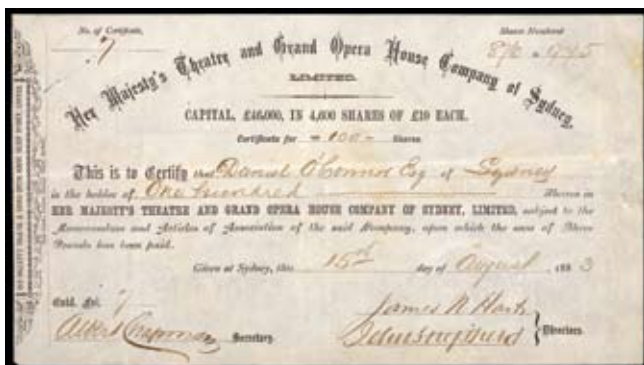 No. of Certificate,
7
Shares Numbered
945
Her Majesty's Theatre and Grand Opera House Company of Sydney,
LIMITED.
CAPITAL, £46,000, IN 4,600 SHARES OF £10 EACH.
Certificate for 100 Shares
This is to Certify that Daniel O'Connor Esq of Sydney
is the holder of One hundred Shares in
HER MAJESTY'S THEATRE AND GRAND OPERA HOUSE COMPANY OF SYDNEY, LIMITED, subject to the
Memorandum and Articles of Association of the said Company, upon which the sum of Three
Pounds has been paid.
Given at Sydney, this 15th day of August, 1883
Fol. 7
Albert Chapman Secretary.
James R Hart
Directors.